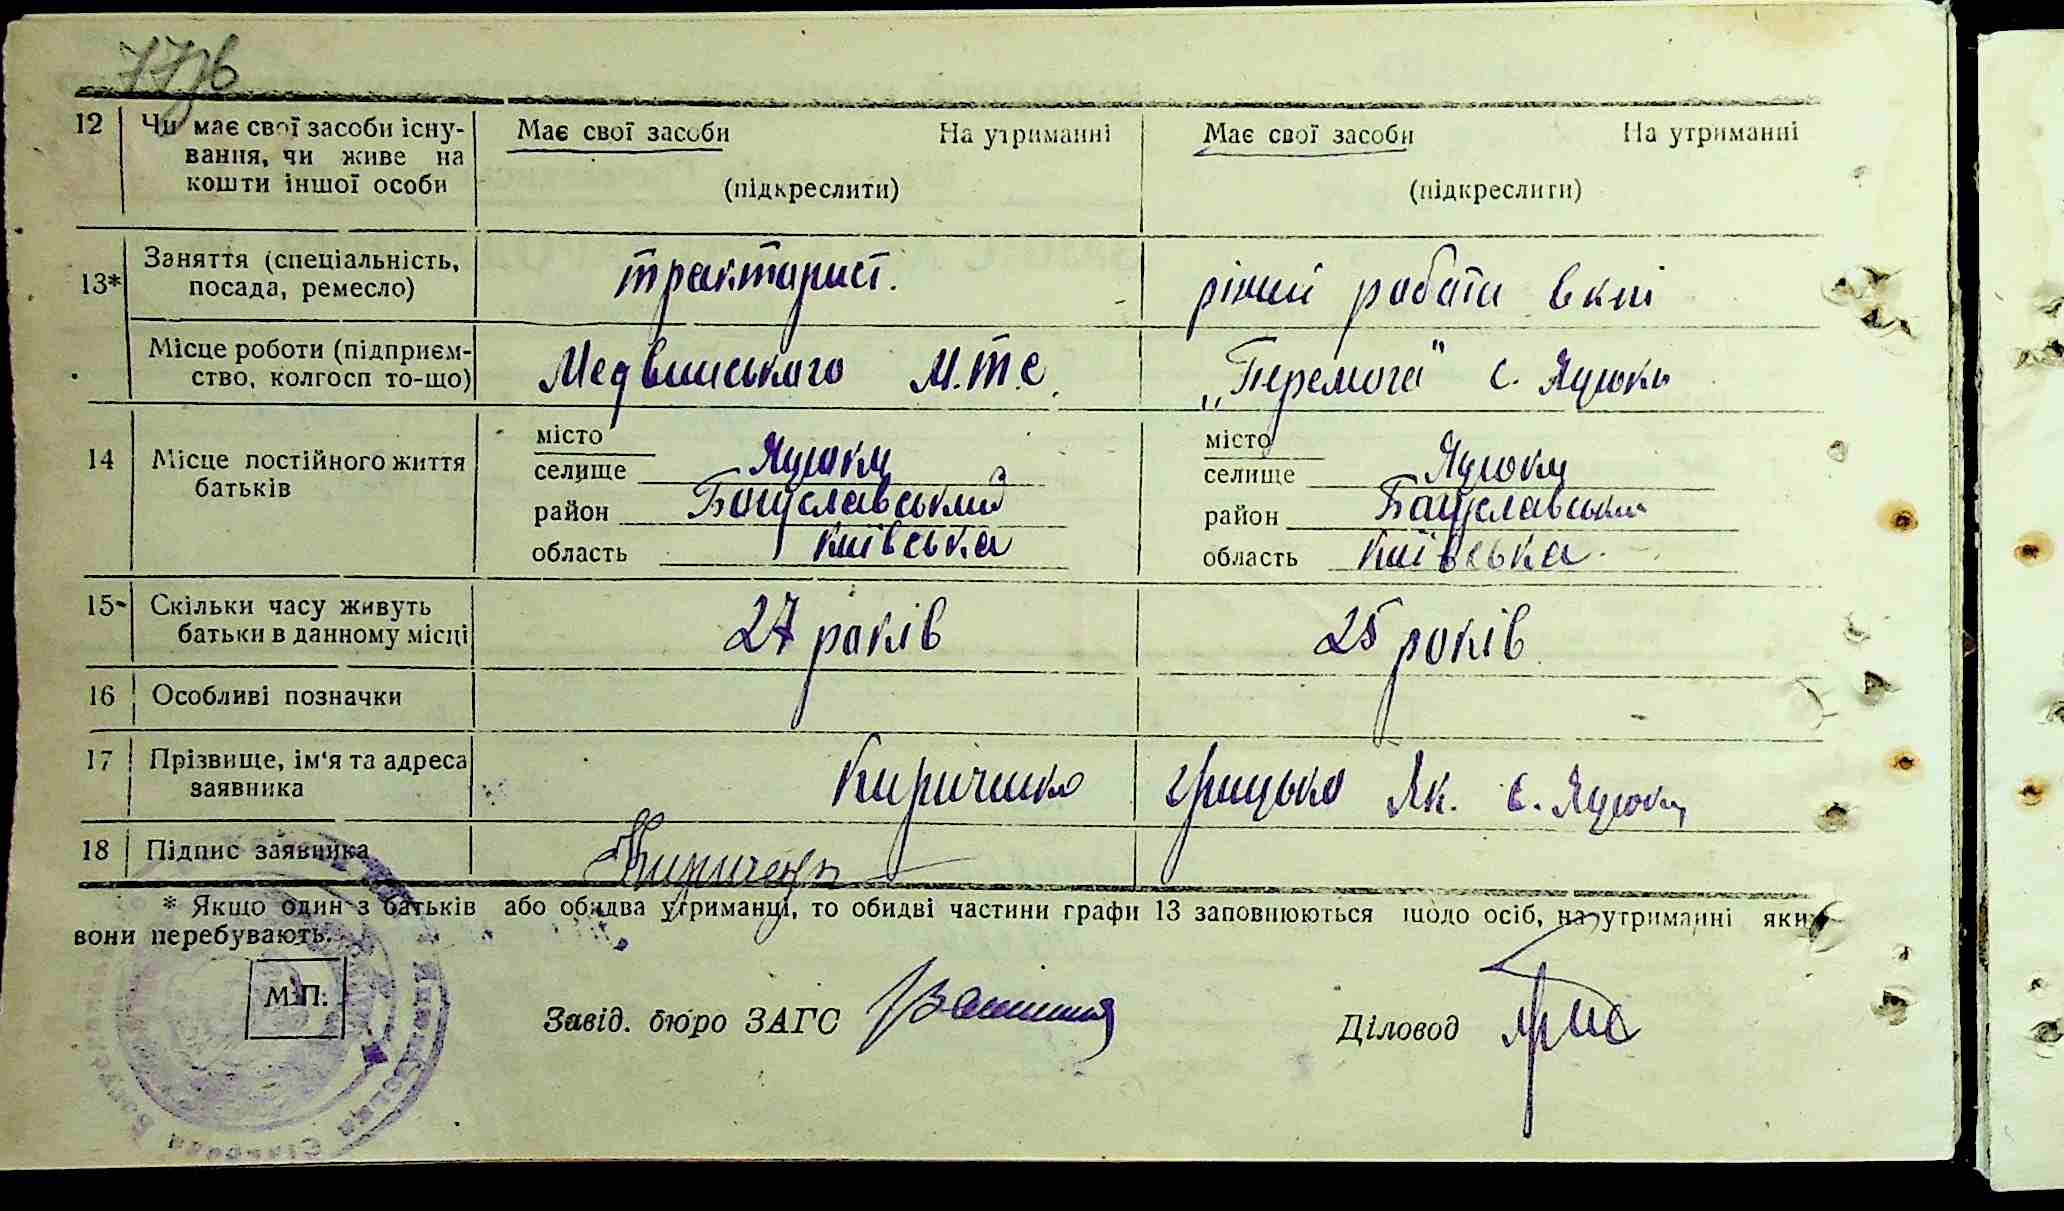 12 Чи має свої засоби існу-
вання, чи живе на
кошти іншої особи
Має свої засоби На утриманні
(підкреслити)
Має свої засоби На утриманні
(підкреслити)
13* Заняття (спеціальність,
посада, ремесло)
тракторист.
різній роботи в к-пі
Місце роботи (підприєм-
ство, колгосп то-що)
Медвинського М.Т.С.
„Перемога" с. Яцюки
14 Місце постійного життя
батьків
місто
селище Яцюки
район Богуславський
область Київська
місто
селище Яцюки
район Богуславський
область Київська
15 Скільки часу живуть
батьки в данному місці
27 років
25 років
16 Особливі позначки
17 Прізвище, ім'я та адреса
заявника
Кириченко Грицько Як. с. Яцюки
18 Підпис заявника
Кириченко
* Якщо один з батьків або обидва утриманці, то обидві частини графи 13 заповнюються щодо осіб, на утриманні яких
вони перебувають.
М.П.
Завід. бюро ЗАГС
Діловод